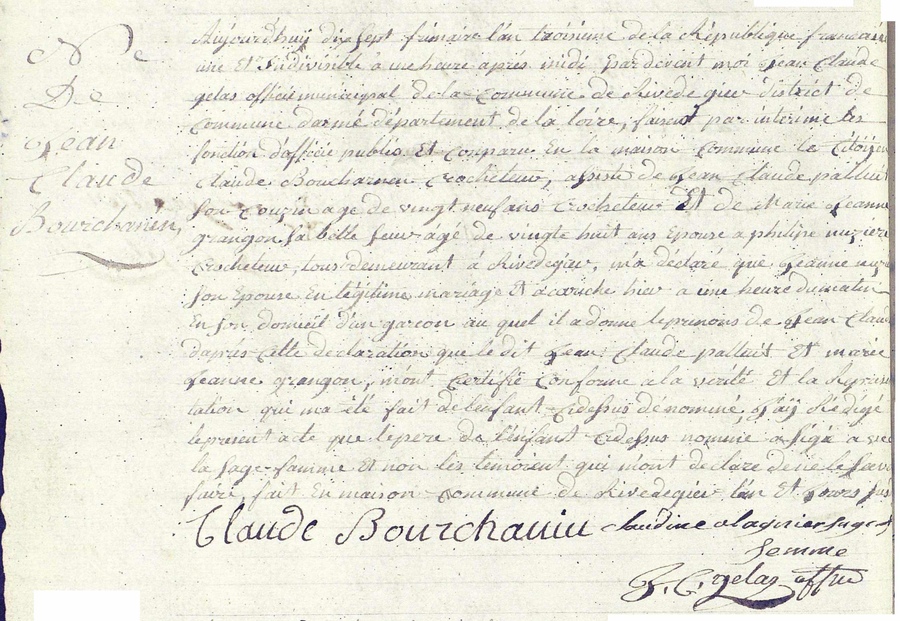 Né
De
Jean
Claude
Bourchanin
Aujourdhuy dix sept frimaire lan troisieme de la Republique francaise
une Et Indivisible a une heure aprés midi par devent moi Jean Claude
gelas officié municipal de la Commune de Rivedegier district de
Commune darmé département de la loire, faisent par interime les
fonction dofficié publis Et Conparu En la maison Commune le Citoyen
Claude Bourchanin Crocheteur, assisté de Jean Claude palluit
son Couzin agé de vingt neuf ans Crocheteur Et de Marie Jeanne
grangon sa belle seur agé de vingte huit ans Epouse a philipe
Crocheteur, tous demeurant á Rivedegier, ma declaré que Jeanne
son Epouse En légitime mariage Et acouché hier a une heure du matin
En son domicil d'un garcon au quel il a donné le prenons de Jean Claude
daprés Cette declaration que le dit Jean Claude palluit Et marie
Jeanne grangon, m'ont Certifié Conforme a la verité Et la Represen
tation qui ma été fait de l'enfant Cidessus dénominé, J'aÿ Rédigé
le present acte que le pere de l'enfant Cidessus nominé a signé avec
la sage-famme Et non les temoient qui m'ont declare de ne le savoir
faire, fait En maison Commune de Rivedegier lan Et Jours
Claude Bourchanin claudine alagnier sage
femme
J. C. gelas offié